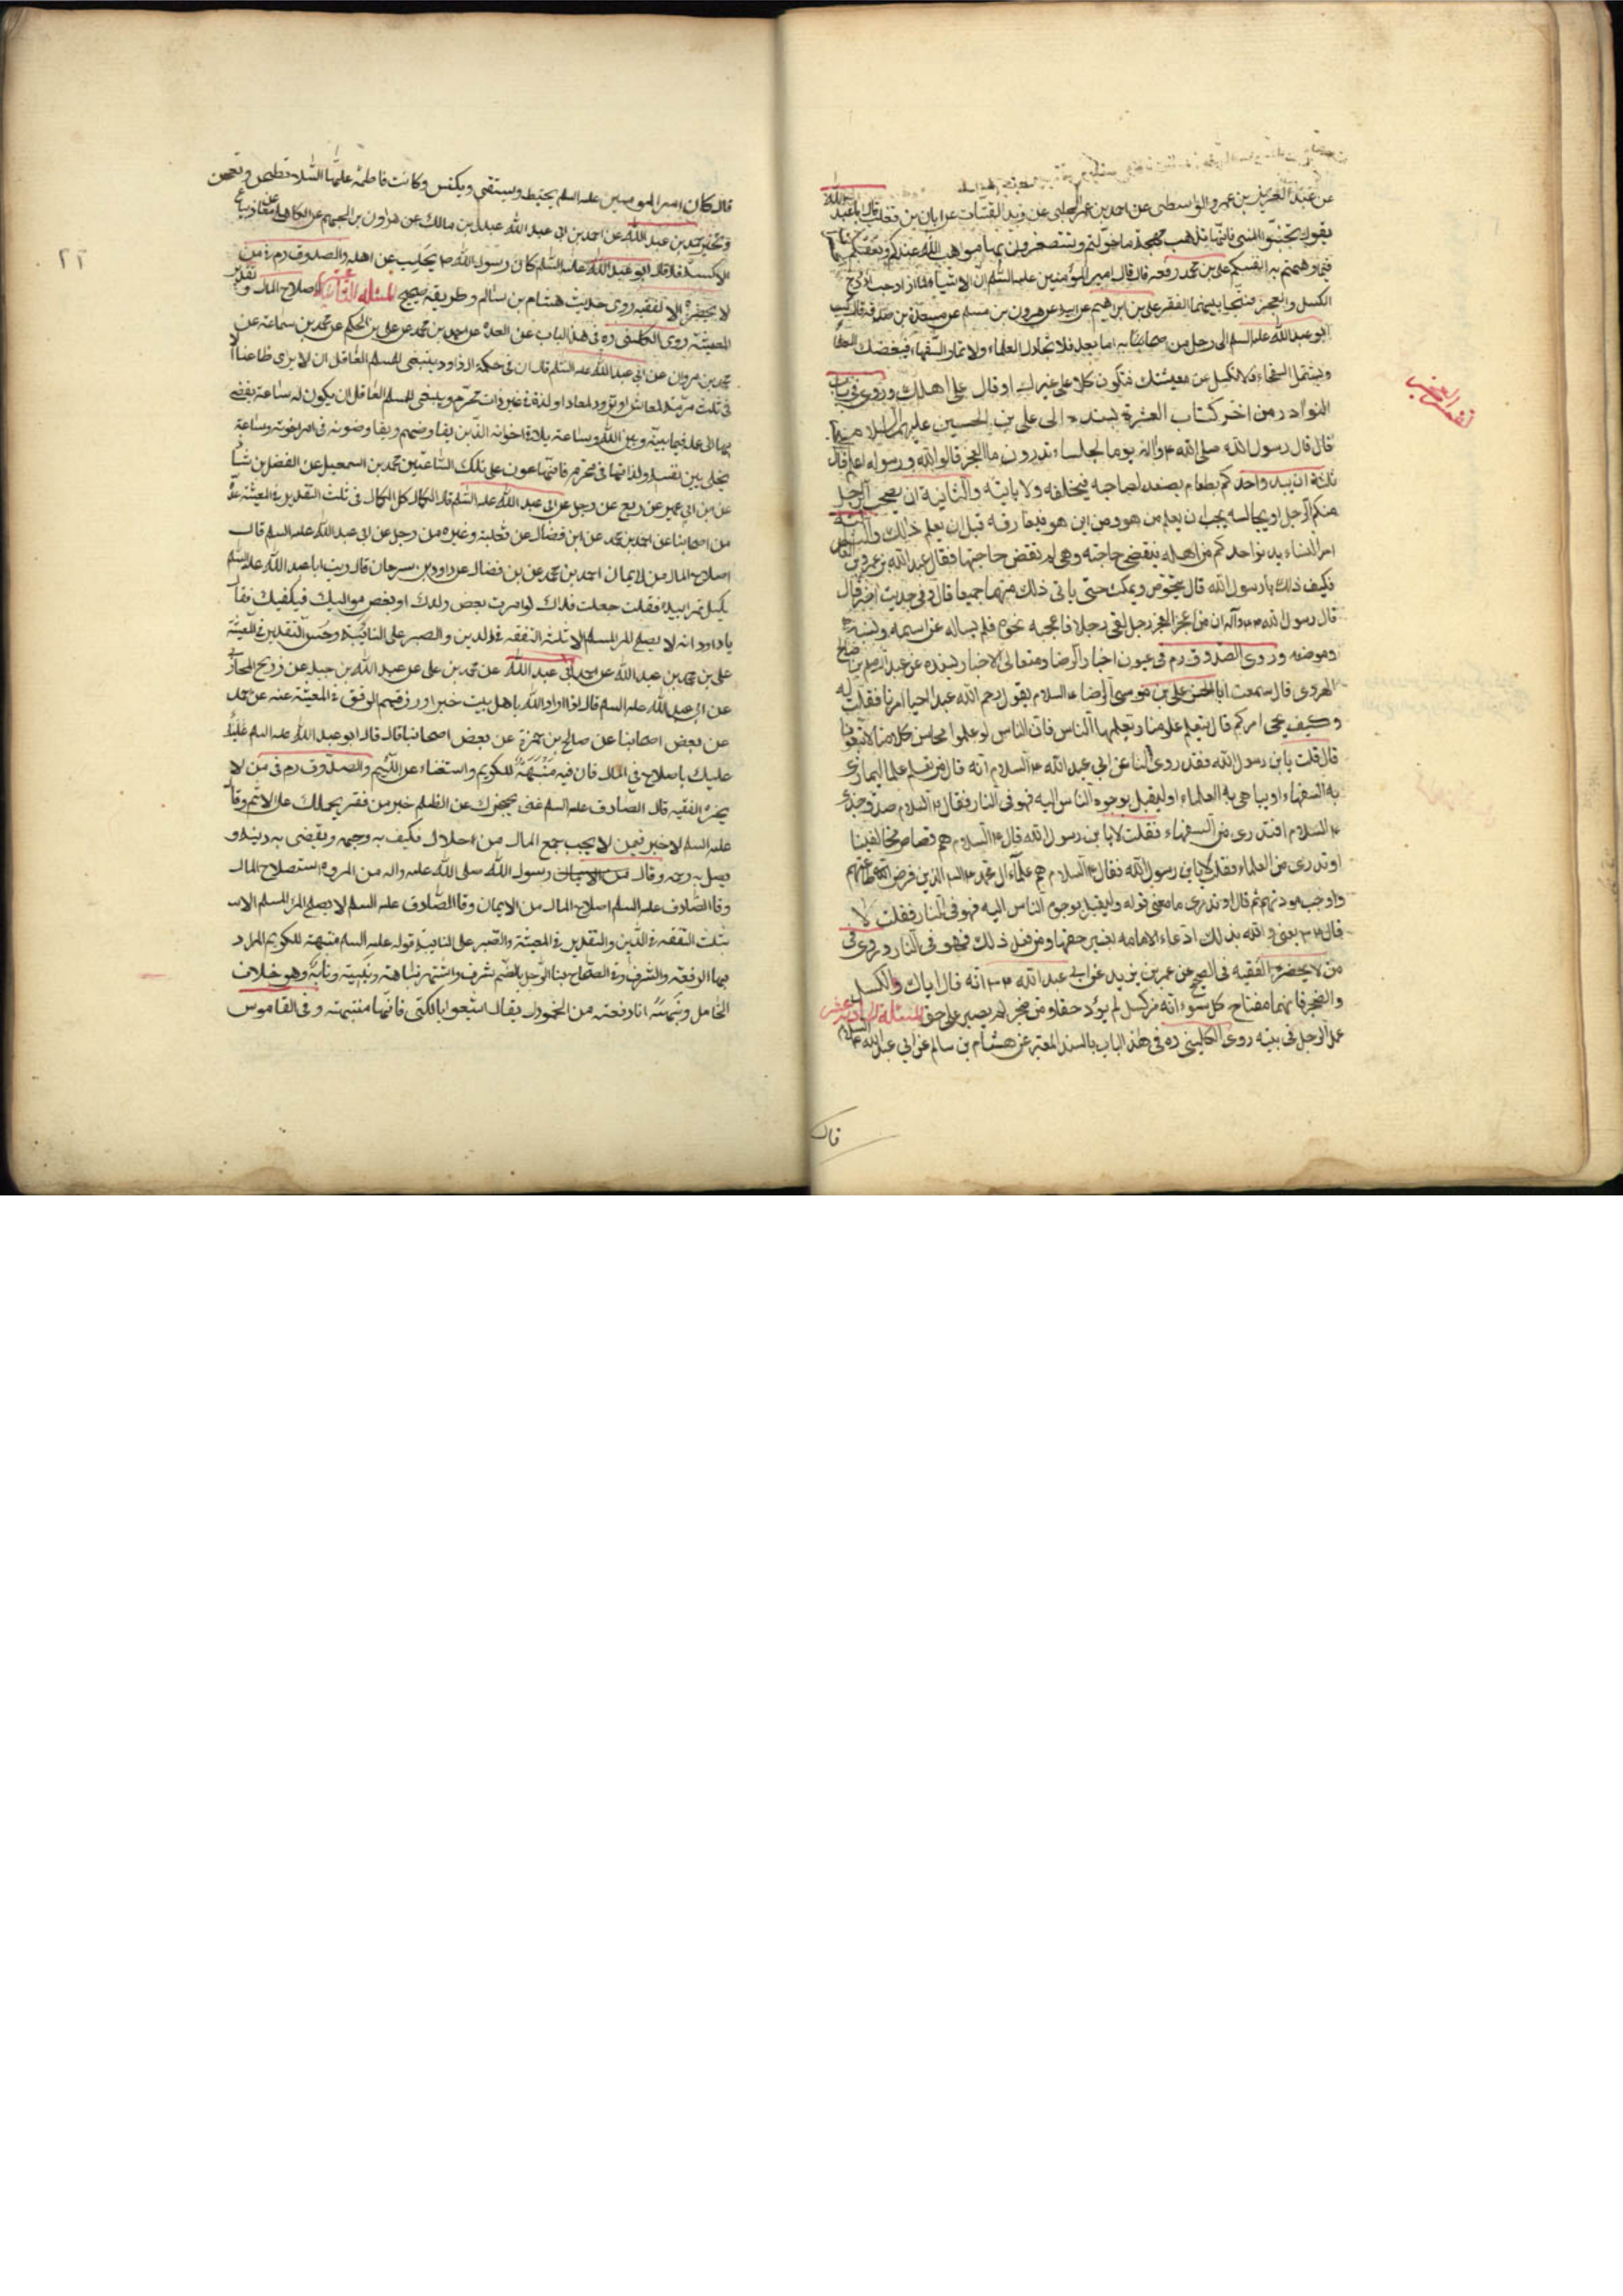 عن عبد العزيز بن عمرو الواسطى عن احمد بن عمر الحلبى عن زيد القتات عن ابان بن تغلب قال سمعت ابا عبد الله
يقول تجنبوا المنى فانها تذهب بهجة ما خولتم وتستصغرون بها مواهب الله عندكم وتعقبكم الحسرات
فيما وهمتم به انفسكم على بن محمد رفعه قال قال امير المؤمنين عليه السلم ان الاشياء لما ازدوجت ازدوج
الكسل والعجز فنتجا بينهما الفقر على بن ابرهيم عن ابيه عن هرون بن مسلم عن مسعدة بن صدقة قال كتب
ابو عبد الله عليه السلم الى رجل من اصحابنا به اما بعد فلا تجادل العلماء ولا تمار السفهاء فيبغضك العلماء
ويشتمك السفهاء ولا تكسل عن معيشتك فتكون كلا على غيرك او قال على اهلك وروى فى باب
النوادر من اخر كتاب العشرة بسنده الى على بن الحسين عليهما السلام
قال قال رسول الله صلى الله عليه واله يوما لجلسائه تدرون ما العجز قالوا الله ورسوله اعلم فقال
ثلثة ان يبدر احدكم بطعام يصنعه لصاحبه فيخلفه ولا ياتيه والثانية ان يصحب الرجل
منكم الرجل او يجالسه يحب ان يعلم من هو ومن اين هو فيفارقه قبل ان يعلم ذلك والثالثة
امر النساء يدنو احدكم من اهله فيقضى حاجته وهى لم تقض حاجتها فقال عبد الله بن عمرو بن العاص
فكيف ذلك يا رسول الله قال يتحوش ويمكث حتى ياتى ذلك منهما جميعا قال وفى حديث اخر قال
قال رسول الله وآله ان من اعجز العجز رجل لقى رجلا فاعجبه نحوه فلم يساله عن اسمه ونسبه
وموضعه وروى الصدوق ره فى عيون اخبار الرضا ومعانى الاخبار بسنده عن عبد السلام بن صالح
الهروى قال سمعت ابا الحسن على بن موسى الرضا السلام يقول رحم الله عبدا احيا امرنا فقلت له
وكيف يحيى امركم قال يتعلم علومنا ويعلمها الناس فان الناس لو علموا محاسن كلامنا لاتبعونا
قال قلت يا بن رسول الله فقد روى لنا عن ابى عبد الله السلام انه قال من تعلم علما ليمارى
به السفهاء او يباهى به العلماء او ليقبل بوجوه الناس اليه فهو فى النار فقال السلام صدق جدى
السلام افتدرى من السفهاء فقلت لا يا بن رسول الله قال السلام هم قصاص مخالفينا
او تدرى من العلماء فقلت لا يا بن رسول الله فقال السلام هم علماء آل محمد الذين فرض الله طاعتهم
واوجب مودتهم ثم قال او تدرى ما معنى قوله وليقبل بوجوه الناس اليه فهو فى النار فقلت لا
قال يعنى والله بذلك ادعاء الامامة بغير حقها ومن فعل ذلك فهو فى النار وروى فى
من لا يحضره الفقيه فى الصحيح عن عمر بن يزيد عن ابى عبد الله انه قال اياك والكسل
والضجر فانهما مفتاح كل سوء انه من كسل لم يؤد حقا ومن ضجر لم يصبر على حق المسئلة الحادية عشر
عمل الرجل فى بيته روى الكلينى ره فى هذا الباب بالسند المعتبر عن هشام بن سالم عن ابى عبد الله السلام
قال
٢٢
قال كان امير المومنين عليه السلم يحتطب ويستقى ويكنس وكانت فاطمة عليها السلام تطحن وتعجن
وتخبز محمد بن عبد الله عن احمد بن ابى عبد الله عن عبدل بن مالك عن هارون بن الجهم عن الكاهلى عن معاذ بياع
الاكسية قال قال ابو عبد الله عليه السلم كان رسول الله يحلب عن اهله والصدوق ره فى من
لا يحضره الفقيه روى حديث هشام بن سالم وطريقه صحيح المسئلة الثانية عشر اصلاح المال وتقدير
المعيشة روى الكلينى ره فى هذا الباب عن العدة عن احمد بن محمد عن على بن الحكم عن محمد بن سماعة عن
محمد بن مروان عن ابى عبد الله عليه السلم قال ان فى حكمة ال داود ينبغى للمسلم العاقل ان لا يرى ظاعنا الا
فى ثلث مرمة لمعاش او تزود لمعاد او لذة فى غير ذات محرم وينبغى للمسلم العاقل ان يكون له ساعة يفضى
بها الى عمله فيما بينه وبين الله وساعة يلاقى اخوانه الذين يفاوضهم ويفاوضونه فى امر اخرته وساعة
يخلى بين نفسه ولذاتها فى غير محرم فانها عون على تلك الساعتين محمد بن اسمعيل عن الفضل بن شاذان
عن ابن ابى عمير عن ربعى عن رجل عن ابى عبد الله عليه السلم قال الكمال كل الكمال فى ثلث التقدير فى المعيشة عدة
من اصحابنا عن احمد بن محمد عن ابن فضال عن ثعلبة وغيره من رجل عن ابى عبد الله عليه السلم قال
اصلاح المال من الايمان احمد بن محمد عن بن فضال عن داود بن سرحان قال رايت ابا عبد الله عليه السلم
يكيل تمرا بيده فقلت جعلت فداك لو امرت بعض ولدك او بعض مواليك فيكفيك فقال
يا داود انه لا يصلح المرء المسلم الا ثلثة التفقه فى الدين والصبر على النائبة وحسن التقدير فى المعيشة
على بن محمد بن عبد الله عن احمد بن ابى عبد الله عن محمد بن على عن عبد الله بن جبلة عن ذريح المحاربى
عن ابى عبد الله عليه السلم قال اذا اراد الله باهل بيت خيرا رزقهم الرفق فى المعيشة عنه عن محمد
عن بعض اصحابنا عن صالح بن حمزة عن بعض اصحابنا قال قال ابو عبد الله عليه السلم عليك
عليك باصلاح المال فان فيه منبهة للكريم واستغناء عن اللئيم والصدوق ره فى من لا
يحضره الفقيه قال الصادق عليه السلم غنى يحجزك عن الظلم خير من فقر يحملك على الاثم وقال
عليه السلم لا خير فيمن لا يحب جمع المال من احلال فيكف به وجهه ويقضى به دينه و
يصل به رحمه وقال رسول الله صلى الله عليه واله من المروة استصلاح المال
وقال الصادق عليه السلم اصلاح المال من الايمان وقال الصادق عليه السلم لا يصلح المرء المسلم الا
بثلث التفقه فى الدين والتقدير فى المعيشة والصبر على النائبة قوله عليه السلم منبهة للكريم المراد
بها الرفعة والشرف وفى الصحاح نبه الرجل بالضم شرف واشتهر نباهة ونبيه ونابه وهو خلاف
الخامل ونبهته انا رفعته من الخمول يقال اشيعوا بالكنى فانها منبهة وفى القاموس